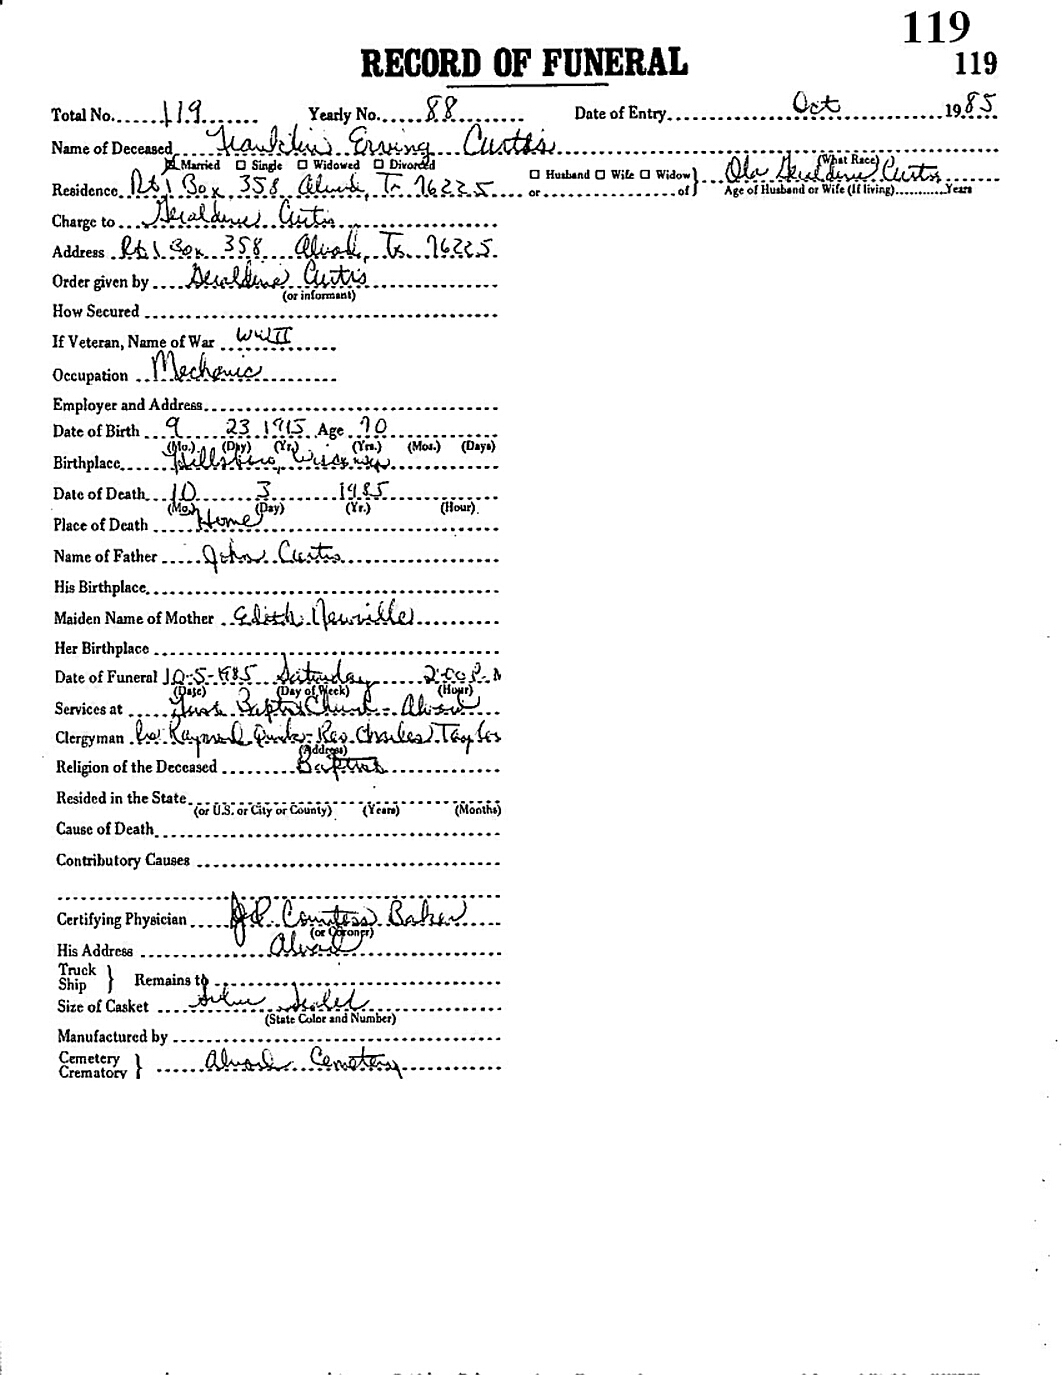 119
RECORD OF FUNERAL 119
Total No. 119 Yearly No. 88 Date of Entry Oct 1985
Name of Deceased Franklin Erving Curtis
Married Single Widowed Divorced (What Race)
Residence Rt 1 Box 358 Alvord, Tx 76225 or Husband Wife Widow of } Ola Geraldine Curtis
Age of Husband or Wife (If living) Years
Charge to Geraldine Curtis
Address Rt 1 Box 358 Alvord, Tx. 76225
Order given by Geraldine Curtis
(or informant)
How Secured
If Veteran, Name of War WWII
Occupation Mechanic
Employer and Address
Date of Birth 9 23 1915 Age 70
(Mo.) (Day) (Yr.) (Yrs.) (Mos.) (Days)
Birthplace Hillsboro, Wisconsin
Date of Death 10 3 1985
(Mo.) (Day) (Yr.) (Hour)
Place of Death Home
Name of Father John Curtis
His Birthplace
Maiden Name of Mother Edith Neuville
Her Birthplace
Date of Funeral 10-5-1985 Saturday 2:00 P.M
(Date) (Day of Week) (Hour)
Services at First Baptist Church - Alvord
Clergyman Raymond Rev. Charles Taylor
(Address)
Religion of the Deceased Baptist
Resided in the State
(or U.S. or City or County) (Years) (Months)
Cause of Death
Contributory Causes
Certifying Physician J.P. Countess Baker
(or Coroner)
His Address Alvord
Truck Ship } Remains to
Size of Casket Silver Sealed
(State Color and Number)
Manufactured by
Cemetery Crematory } Alvord Cemetery